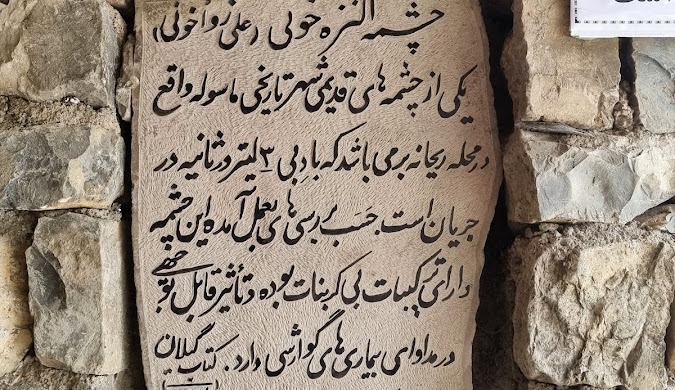 چشمه النزه خونی (علی زوأ خونی)
یکی از چشمه های قدیمی شهر تاریخی ماسوله واقع
در محله ریحانه بر می باشد که با دبی ۳ لیتر در ثانیه در
جریان است. حَسَب بررسی های بعمل آمده این چشمه
دارای ترکیبات بی کربنات بوده و تأثیر قابل توجهی
در مداوای بیماری های گوارشی دارد. کتاب گیلان